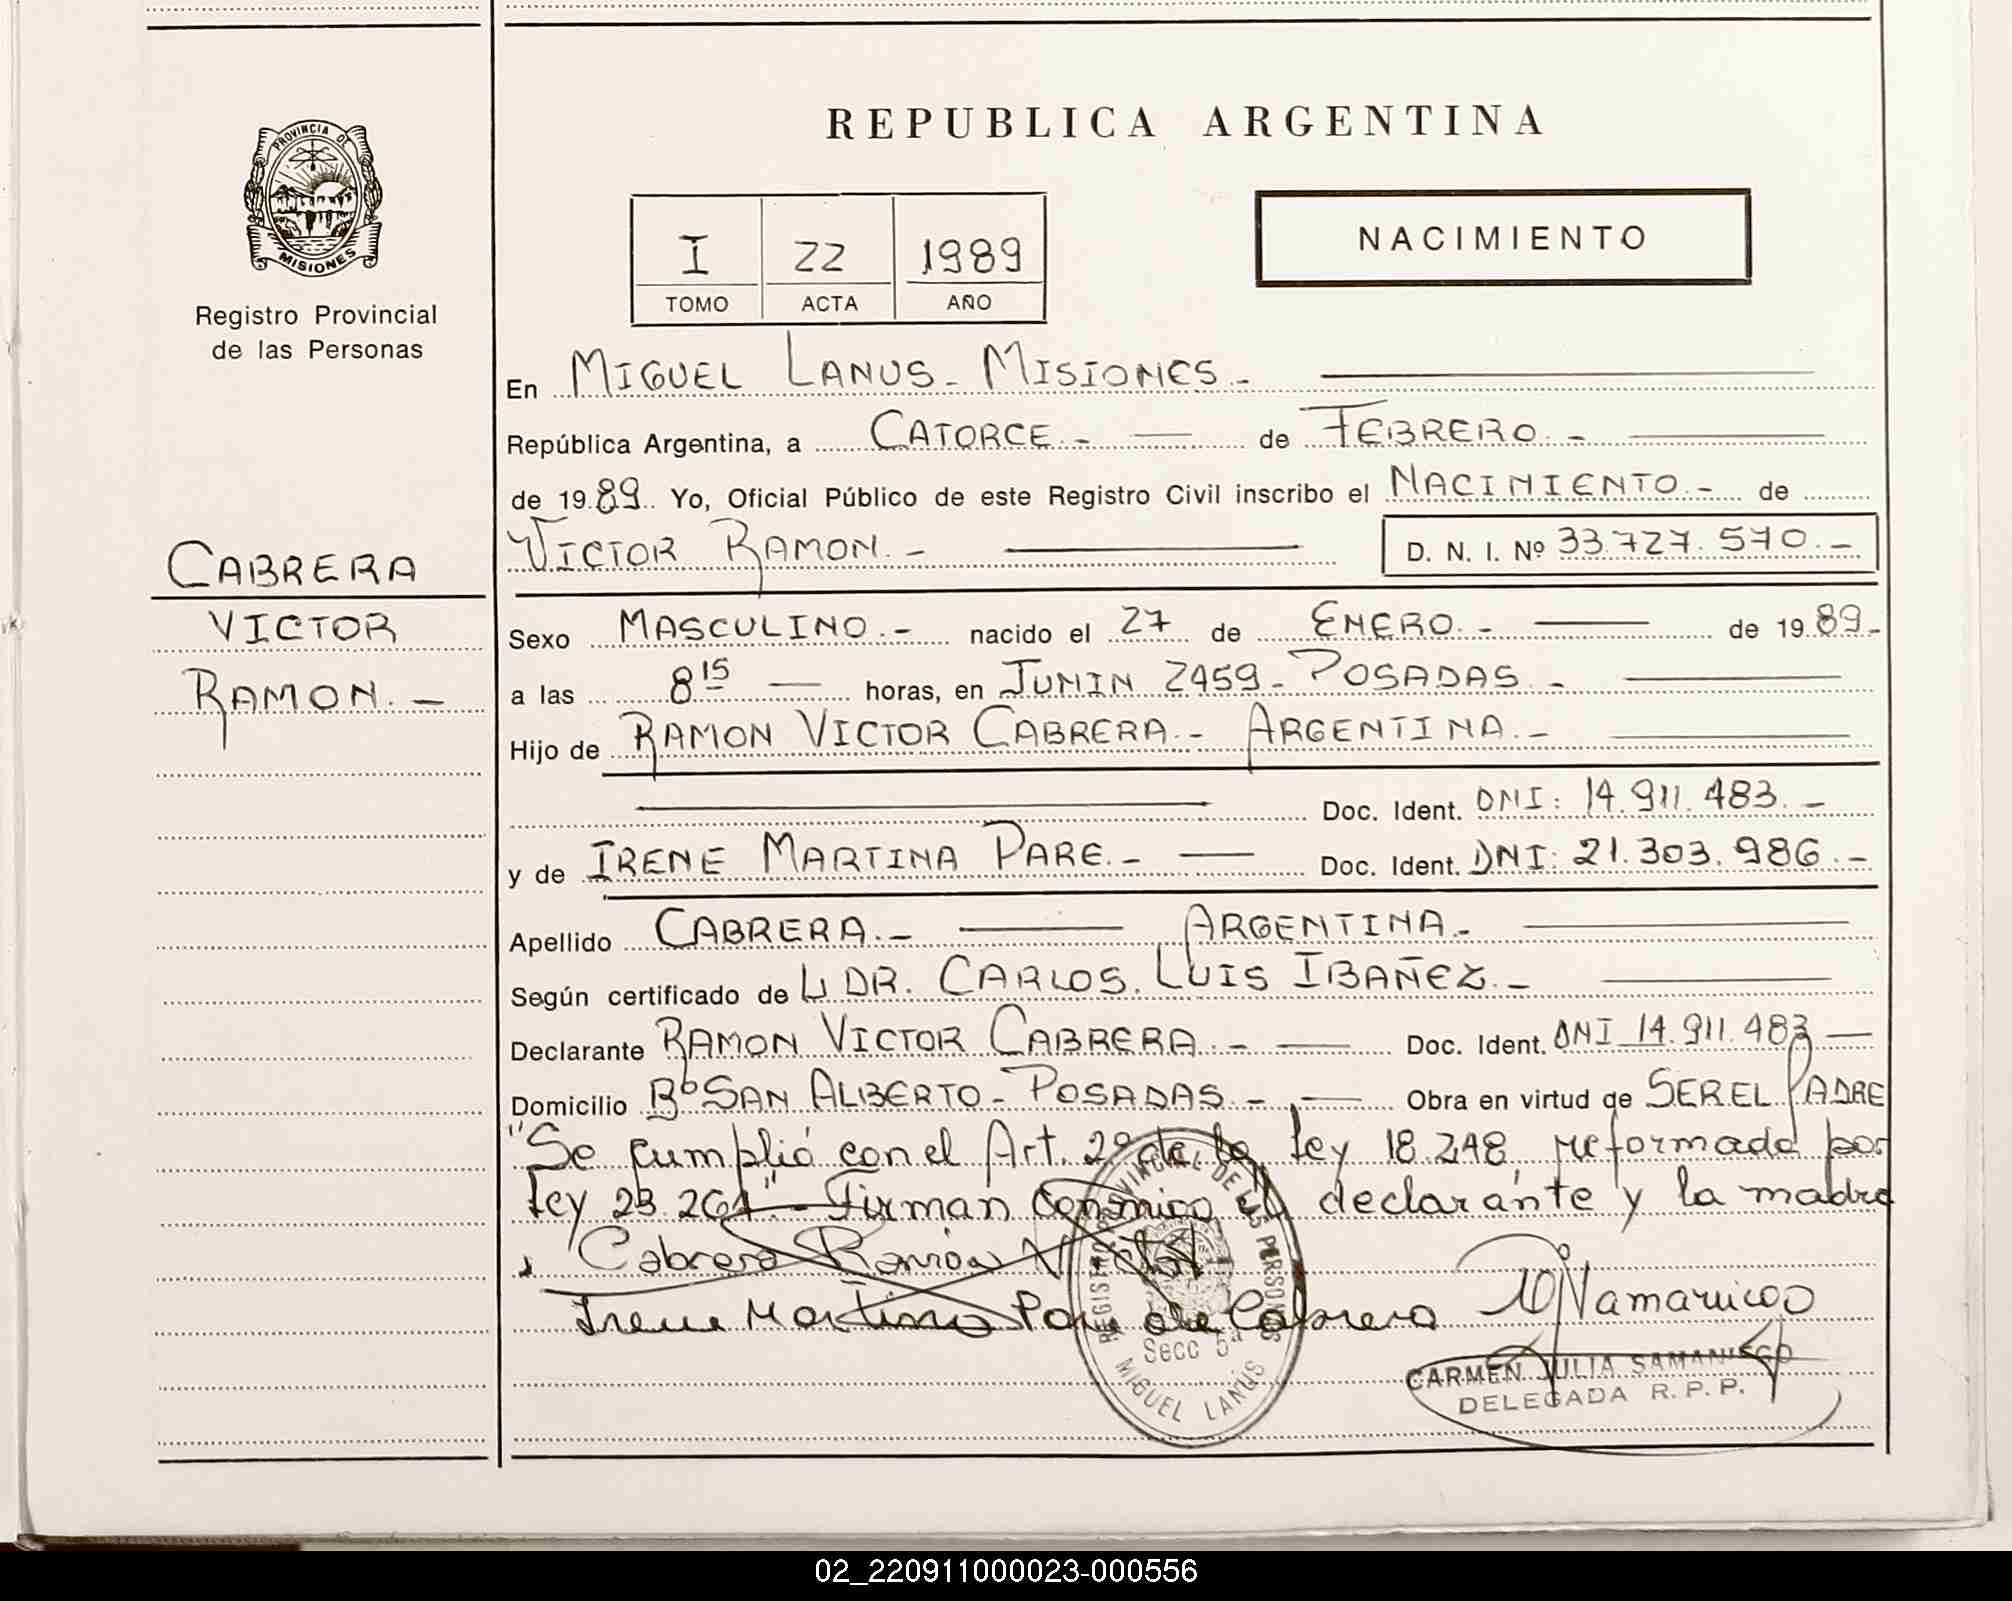 REPUBLICA ARGENTINA
PROVINCIA DE
MISIONES
Registro Provincial
de las Personas
I 22 1989
TOMO ACTA AÑO
NACIMIENTO
En MIGUEL LANUS - MISIONES -
República Argentina, a CATORCE - de FEBRERO -
de 1989 Yo, Oficial Público de este Registro Civil inscribo el NACIMIENTO - de
VICTOR RAMON - D. N. I. Nº 33.727.570 -
CABRERA
VICTOR
RAMON. -
Sexo MASCULINO - nacido el 27 de ENERO - de 1989 -
a las 8 15 horas, en JUNIN 2459 - POSADAS -
Hijo de RAMON VICTOR CABRERA - ARGENTINA -
Doc. Ident. DNI: 14.911.483 -
y de IRENE MARTINA PARE - Doc. Ident. DNI: 21.303.986 -
Apellido CABRERA - ARGENTINA -
Según certificado de DR. CARLOS LUIS IBAÑEZ -
Declarante RAMON VICTOR CABRERA - Doc. Ident. DNI 14.911.483 -
Domicilio Bº SAN ALBERTO - POSADAS - Obra en virtud de SER EL PADRE
"Se cumplió con el Art. 2º de la ley 18.248, reformado por
ley 23.264" - Firman conmigo el declarante y la madre
Cabrera Ramón Victor
Irene Martina Pare de Cabrera
REGISTRO PROVINCIAL DE LAS PERSONAS
Secc 5ª
MIGUEL LANUS
CARMEN JULIA SAMANIEGO
DELEGADA R. P. P.
02_220911000023-000556